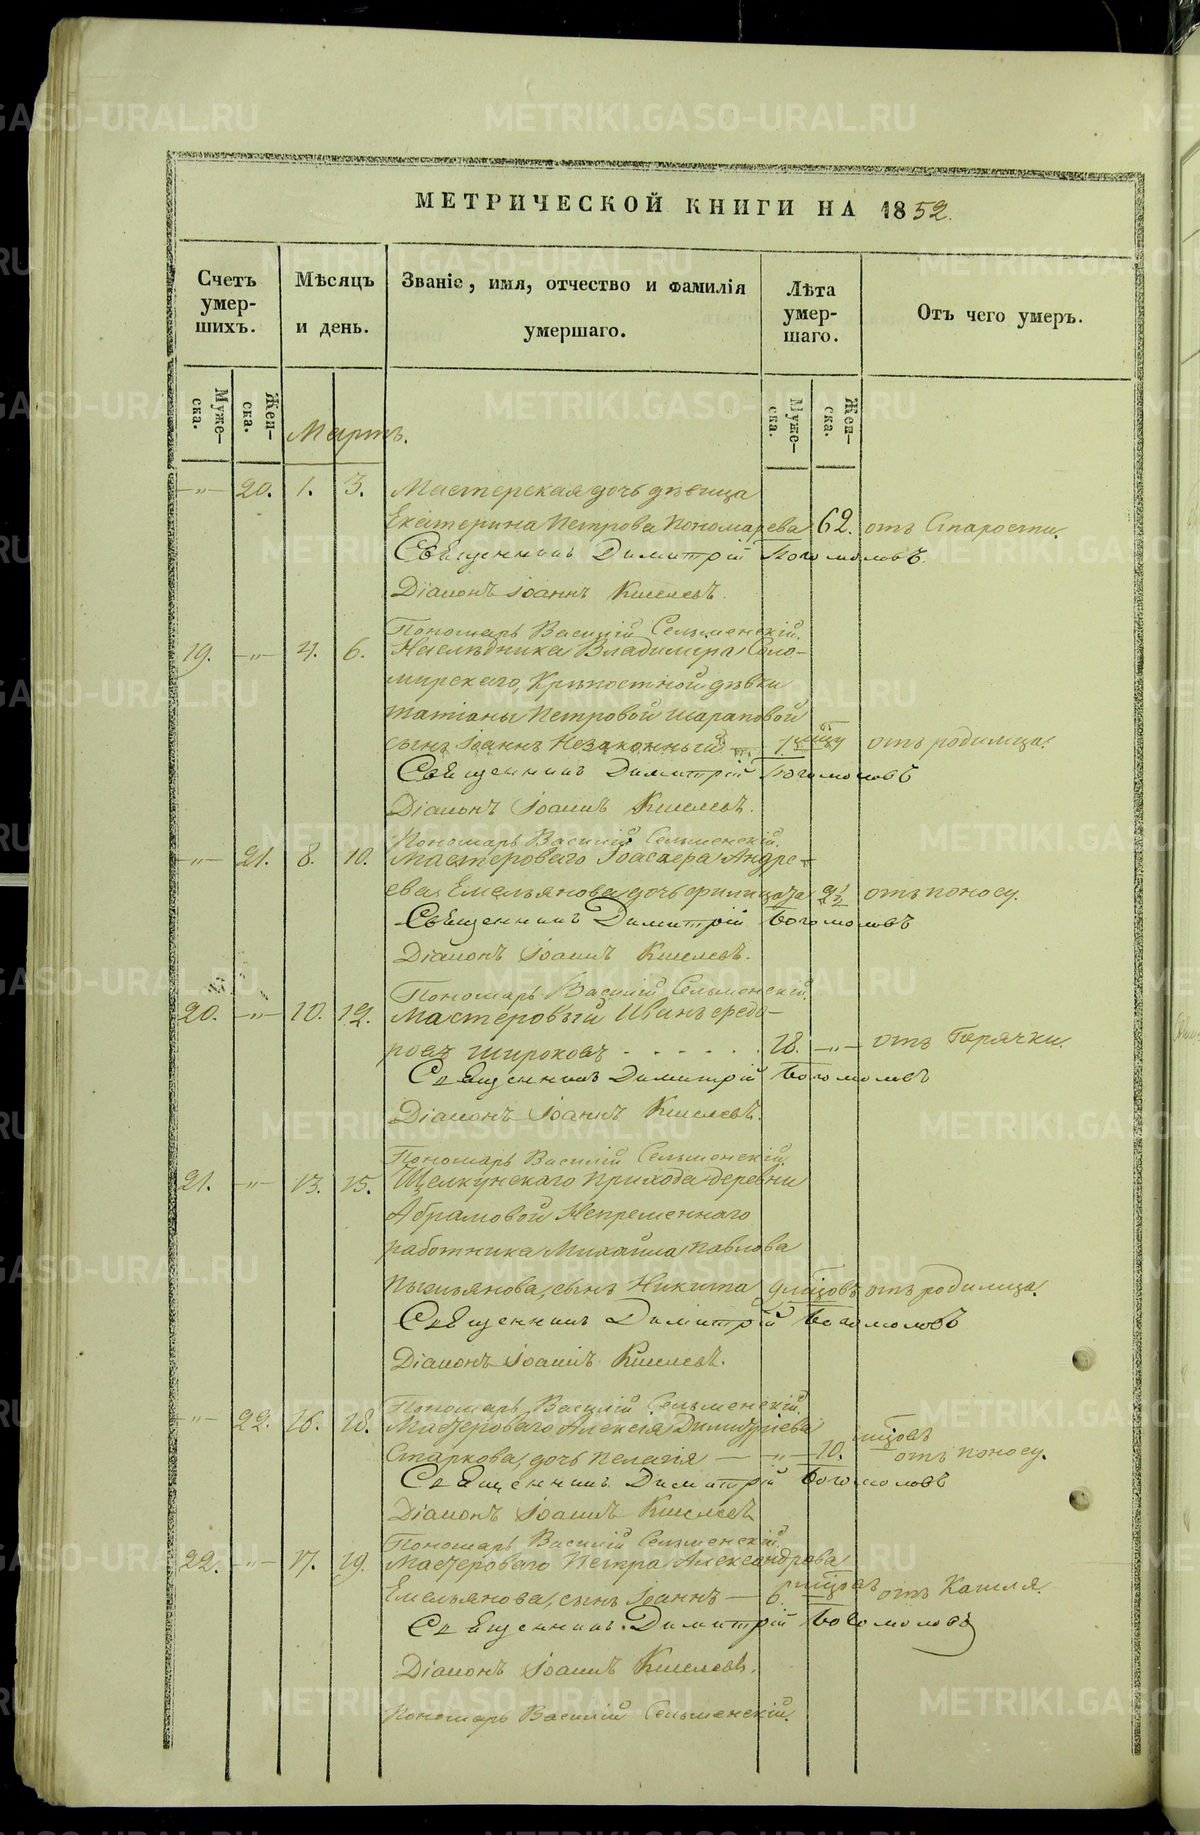 МЕТРИЧЕСКОЙ КНИГИ НА 1852.
Счетъ умер-шихъ.
Мѣсяцъ и день.
Званіе, имя, отчество и фамилія умершаго.
Лѣта умер-шаго.
Отъ чего умеръ.
Муже-ска. Жен-ска. Муже-ска. Жен-ска.
Мартъ.
—"— 20. 1. 3. Мастерская дочь дѣвица
Екатерина Петрова Пономарева 62. отъ Старости.
Священникъ Димитрій Богомоловъ
Діаконъ Іоаннъ Киселевъ.
Пономарь Василій Сельменскій.
19. —"— 4. 6. Наслѣдника Владимира Соло-
мирскаго, Крѣпостной дѣвки
татіаны Петровой Шараповой
сынъ Іоаннъ Незаконный 1. мцу отъ родимца.
Священникъ Димитрій Богомоловъ
Діаконъ Іоаннъ Киселевъ.
Пономарь Василій Сельменскій.
—"— 21. 8. 10. Мастероваго Андре-
ева Емельянова дочь 2½ отъ поносу.
Священникъ Димитрій Богомоловъ
Діаконъ Іоаннъ Киселевъ.
Пономарь Василій Сельменскій.
20. —"— 10. 12. Мастеровый Иванъ Федо-
ровъ Широковъ . . . . . . 28. —"— отъ Горячки.
Священникъ Димитрій Богомоловъ
Діаконъ Іоаннъ Киселевъ.
Пономарь Василій Сельменскій.
21. —"— 13. 15. Щелкунскаго Прихода деревни
Абрамовой Непременнаго
работника Михаила Павлова
сынъ Никита 9 мцовъ отъ родимца.
Священникъ Димитрій Богомоловъ
Діаконъ Іоаннъ Киселевъ.
Пономарь Василій Сельменскій.
—"— 22. 16. 18. Мастероваго Алексія Димитріева
Старкова, дочь Пелагія — —"— 10. мцовъ отъ поносу.
Священникъ Димитрій Богомоловъ
Діаконъ Іоаннъ Киселевъ
Пономарь Василій Сельменскій.
22. —"— 17. 19. Мастероваго Петра Александрова
Емельянова, сынъ Іоаннъ — 6. мцовъ отъ Кашля.
Священникъ Димитрій Богомоловъ
Діаконъ Іоаннъ Киселевъ.
Пономарь Василій Сельменскій.
METRIKI.GASO-URAL.RU